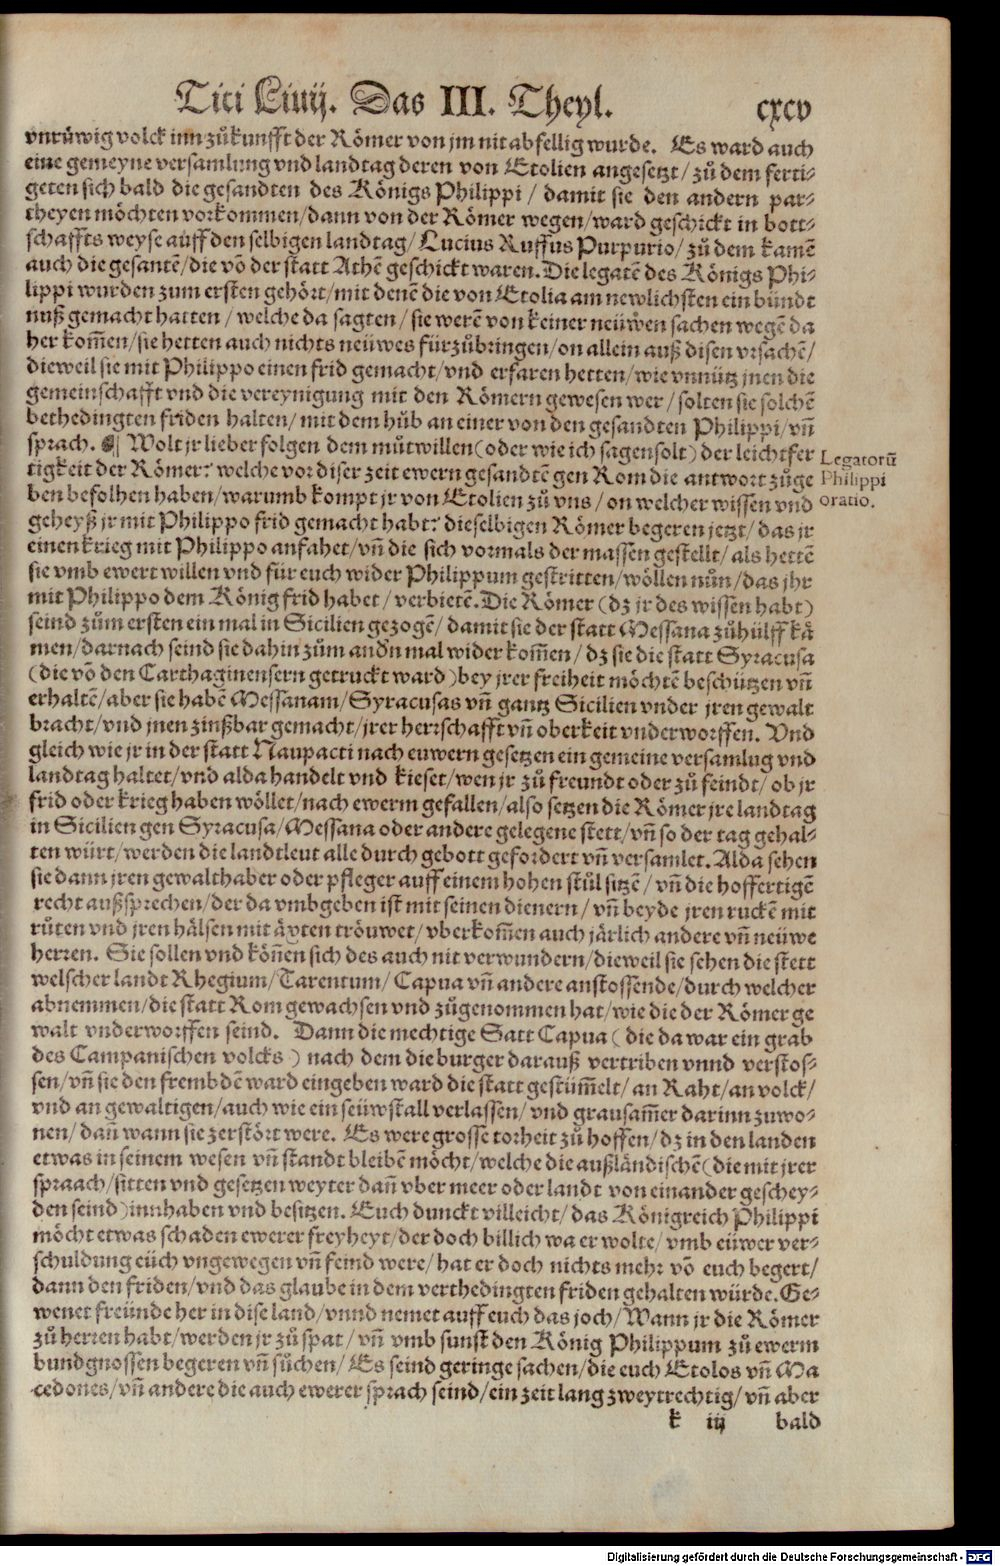 Titi Liuij. Das III. Theyl. cxcv
vnrůwig volck inn zůkunfft der Römer von jm nit abfellig wurde. Es ward auch
eine gemeyne versamlung vnd landtag deren von Etolien angesetzt/ zů dem ferti-
geten sich bald die gesandten des Königs Philippi/ damit sie den andern par-
theyen möchten vorkommen/dann von der Römer wegen/ward geschickt in bott-
schaffts weyse auff den selbigen landtag/ Lucius Ruffus Purpurio/ zů dem kamē
auch die gesantē/die vō der statt Athē geschickt waren. Die legatē des Königs Phi-
lippi wurden zum ersten gehört/mit denē die von Etolia am newlichsten ein bündt
nuß gemacht hatten/ welche da sagten/ sie werē von keiner neüwen sachen wegē da
her kom̄en/sie hetten auch nichts neüwes fürzůbringen/on allein auß disen vrsachē/
dieweil sie mit Philippo einen frid gemacht/vnd erfaren hetten/wie vnnütz jnen die
gemeinschafft vnd die vereynigung mit den Römern gewesen wer/ solten sie solchē
bethedingten friden halten/ mit dem hůb an einer von den gesandten Philippi/ vn̄
sprach. ¶ Wolt jr lieber folgen dem můtwillen(oder wie ich sagen solt) der leichtfer
tigkeit der Römer? welche vor diser zeit ewern gesandtē gen Rom die antwort zůge
ben befolhen haben/warumb kompt jr von Etolien zů vns/ on welcher wissen vnd
geheyß jr mit Philippo frid gemacht habt? dieselbigen Römer begeren jetzt/ das jr
einen krieg mit Philippo anfahet/vn̄ die sich vormals der massen gestellt/ als hettē
sie vmb ewert willen vnd für euch wider Philippum gestritten/wöllen nůn/das jhr
mit Philippo dem König frid habet/ verbietē. Die Römer (dz jr des wissen habt)
seind zům ersten ein mal in Sicilien gezogē/ damit sie der statt Messana zůhülff kä
men/darnach seind sie dahin zům andn mal wider kom̄en/ dz sie die statt Syracusa
(die vō den Carthaginensern getruckt ward)bey jrer freiheit möchtē beschützen vn̄
erhaltē/aber sie habē Messanam/Syracusas vn̄ gantz Sicilien vnder jren gewalt
bracht/vnd jnen zinßbar gemacht/jrer herrschafft vn̄ oberkeit vnderworffen. Vnd
gleich wie jr in der statt Naupacti nach euwern gesetzen ein gemeine versamlug vnd
landtag haltet/vnd alda handelt vnd kieset/wen jr zů freundt oder zů feindt/ ob jr
frid oder krieg haben wöllet/nach ewerm gefallen/also setzen die Römer jre landtag
in Sicilien gen Syracusa/Messana oder andere gelegene stett/vn̄ so der tag gehal-
ten würt/werden die landtleut alle durch gebott gefordert vn̄ versamlet. Alda sehen
sie dann jren gewalthaber oder pfleger auff einem hohen stůl sitzē/ vn̄ die hoffertigē
recht außsprechen/der da vmbgeben ist mit seinen dienern/ vn̄ beyde jren ruckē mit
růten vnd jren hälsen mit äxten tröuwet/ vberkom̄en auch järlich andere vn̄ neüwe
herren. Sie sollen vnd kön̄en sich des auch nit verwundern/dieweil sie sehen die stett
welscher landt Rhegium/Tarentum/Capua vn̄ andere anstossende/durch welcher
abnemmen/die statt Rom gewachsen vnd zůgenommen hat/wie die der Römer ge
walt vnderworffen seind. Dann die mechtige Satt Capua (die da war ein grab
des Campanischen volcks) nach dem die burger darauß vertriben vnnd verstos-
sen/vn̄ sie den frembdē ward eingeben ward die statt gestüm̄elt/ an Raht/an volck/
vnd an gewaltigen/auch wie ein seüwstall verlassen/ vnd grausam̄er darinn zuwo-
nen/ dan̄ wann sie zerstört were. Es were grosse torheit zů hoffen/ dz in den landen
etwas in seinem wesen vn̄ standt bleibē möcht/welche die außländischē(die mit jrer
spraach/sitten vnd gesetzen weyter dan̄ vber meer oder landt von einander geschey-
den seind)innhaben vnd besitzen. Euch dunckt villeicht/das Königreich Philippi
möcht etwas schaden ewerer freyheyt/der doch billich wa er wolte/ vmb eüwer ver-
schuldung eüch vngewegen vn̄ feind were/ hat er doch nichts mehr vō euch begert/
dann den friden/vnd das glaube in dem verthedingten friden gehalten würde. Ge-
wenet freünde her in dise land/vnnd nemet auff euch das joch/Wann jr die Römer
zů herren habt/werden jr zů spat/ vn̄ vmb sunst den König Philippum zů ewerm
bundgnossen begeren vn̄ sůchen/ Es seind geringe sachen/die euch Etolos vn̄ Ma
cedones/vn̄ andere die auch ewerer sprach seind/ein zeit lang zweytrechtig/vn̄ aber
k iij bald
Legatorū
Philippi
oratio.
Digitalisierung gefördert durch die Deutsche Forschungsgemeinschaft - DFG